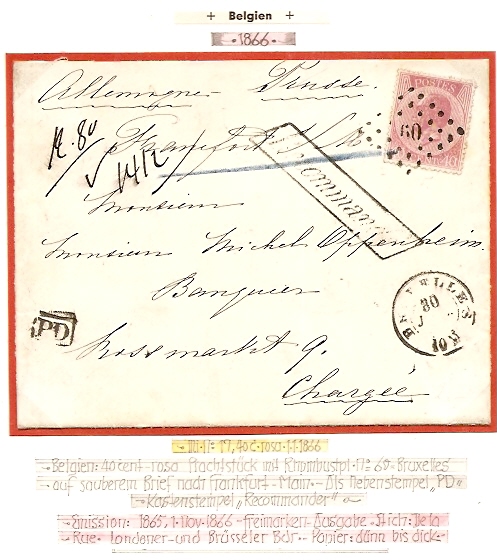 + Belgien +
• 1866 •
Allemagne Prusse
POSTES
60
Frankfort s/M
Recommandé
Monsieur
Monsieur Michel Oppenheim
Banquier
BRUXELLES
30
PD
Rossmarkt 9.
Chargée
40 c. rosa 1.1.1866
Belgien: 40 cent - rosa Prachtstück mit Rhombustpl. No 60 - Bruxelles
auf sauberem Brief nach Frankfurt - Main - Als Nebenstempel „PD"
Kastenstempel „Recommander"
Emission: 1865, 1. Nov. 1866 - Freimarken - Ausgabe - Stich: De la
Rue - Londoner - und Brüsseler Bdr - Papier: dünn bis dick -